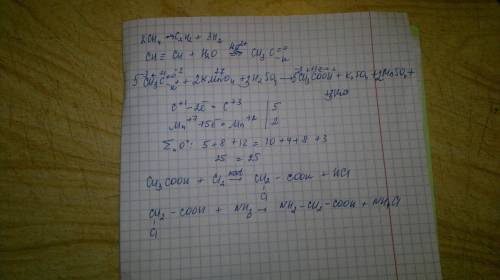 2CH₄ → C₂H₂ + 3H₂
CH ≡ CH + H₂O ⇌ CH₃C
5CH₃C + 2KMnO₄ + 3H₂SO₄ → 5CH₃COOH + K₂SO₄ + 2MnSO₄ +
3H₂O
C⁺¹ - 2e̅ = C⁺³ | 5
Mn⁺⁷ + 5e̅ = Mn⁺² | 2
5 + 8 + 12 = 10 + 4 + 8 + 3
25 = 25
CH₃COOH + Cl₂ → CH₂ - COOH + HCl
Cl
CH₂ - COOH + NH₃ → NH₂ - CH₂ - COOH + NH₄Cl
Cl